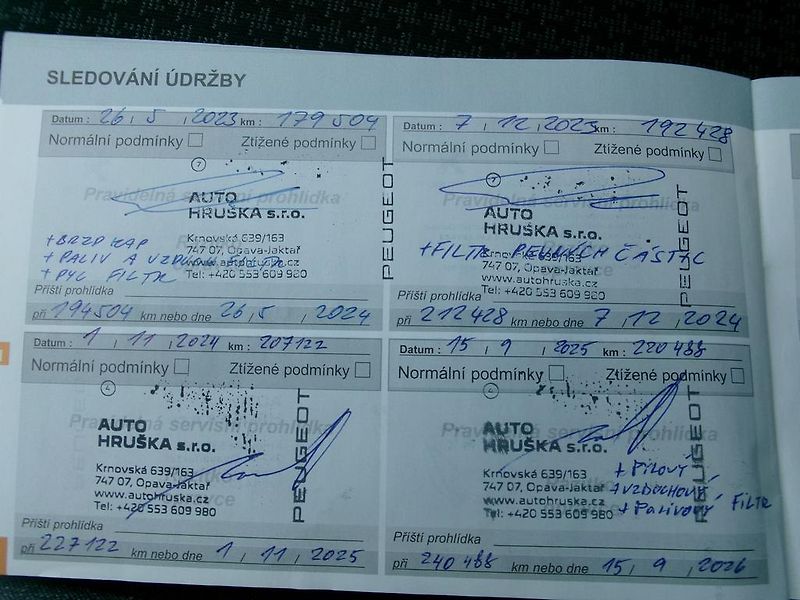 SLEDOVÁNÍ ÚDRŽBY
Datum : 26 / 5 / 2023 km : 179 504
Normální podmínky Ztížené podmínky
7
Pravidelná servisní prohlídka
AUTO
HRUŠKA s.r.o.
Krnovská 639/163
747 07, Opava-Jaktař
www.autohruska.cz
Tel: +420 553 609 980
PEUGEOT
+ BRZD KAP
+ PALIV A VZDUCH FILTR
+ PYL FILTR
Příští prohlídka
při 194504 km nebo dne 26 / 5 / 2024
Datum : 7 / 12 / 2023 km : 192 428
Normální podmínky Ztížené podmínky
7
Pravidelná servisní prohlídka
AUTO
HRUŠKA s.r.o.
Krnovská 639/163
747 07, Opava-Jaktař
www.autohruska.cz
Tel: +420 553 609 980
PEUGEOT
+ FILTR PEVNÝCH ČÁSTIC
Příští prohlídka
při 212428 km nebo dne 7 / 12 / 2024
Datum : 1 / 11 / 2024 km : 207122
Normální podmínky Ztížené podmínky
4
Pravidelná servisní prohlídka
AUTO
HRUŠKA s.r.o.
Krnovská 639/163
747 07, Opava-Jaktař
www.autohruska.cz
Tel: +420 553 609 980
PEUGEOT
Příští prohlídka
při 227122 km nebo dne 1 / 11 / 2025
Datum : 15 / 9 / 2025 km : 220488
Normální podmínky Ztížené podmínky
4
Pravidelná servisní prohlídka
AUTO
HRUŠKA s.r.o.
Krnovská 639/163
747 07, Opava-Jaktař
www.autohruska.cz
Tel: +420 553 609 980
PEUGEOT
+ Pilový
+ vzduchový FILTR
+ Palivový
Příští prohlídka
při 240 488 km nebo dne 15 / 9 / 2026